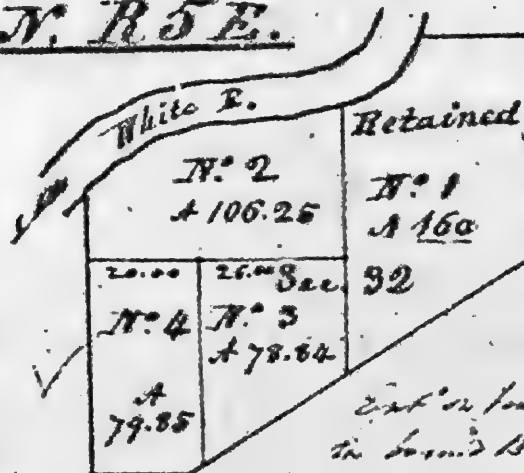 N. R 5 E.
White R.
Retained
No. 2
A 106.25
No. 1
A 160
20.00 Sec. 32
No. 4
No. 3
A 78.84
A
79.85